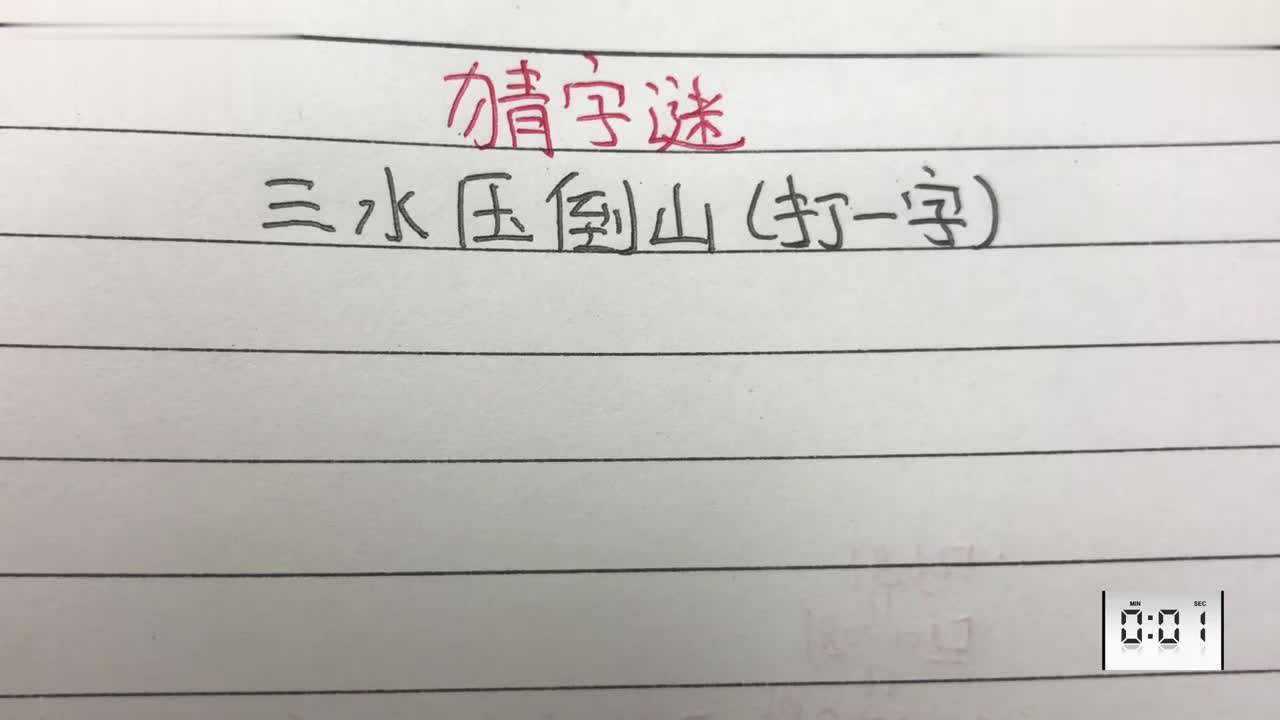 猜字谜
三水压倒山(打一字)
MIN SEC
0:01